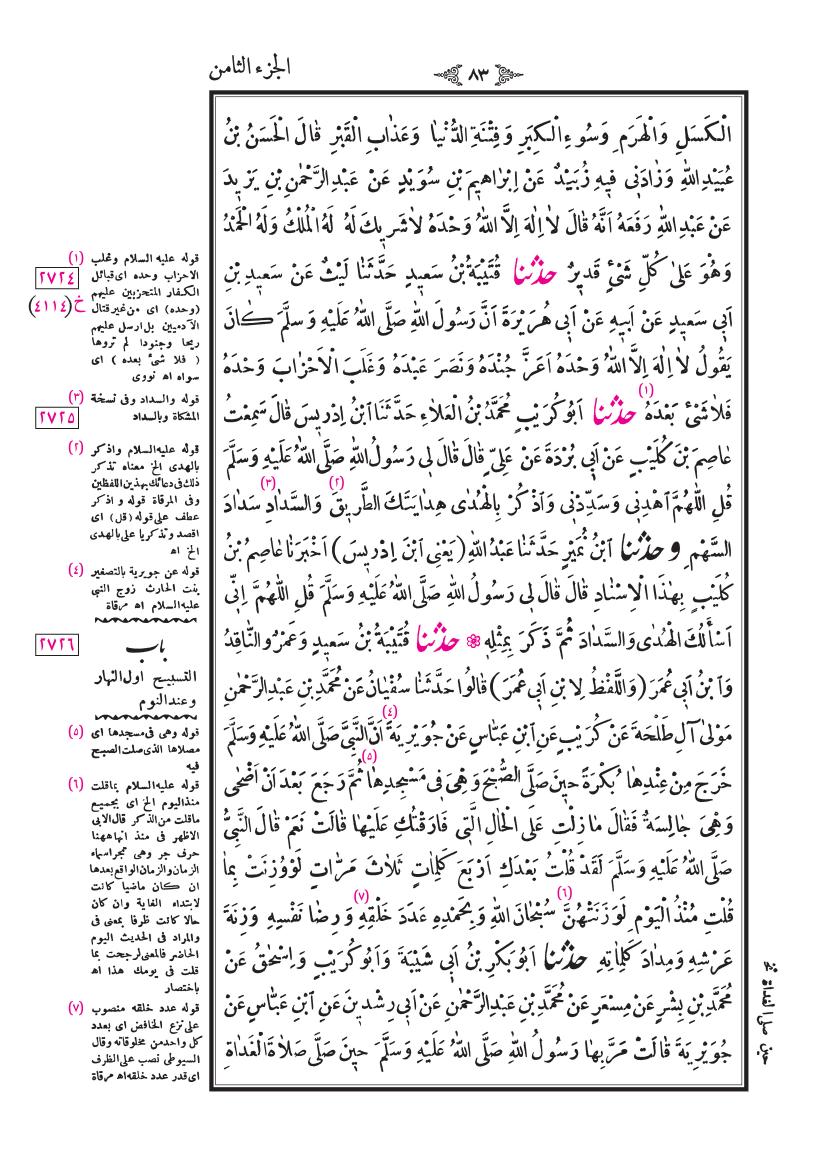 الجزء الثامن
٨٣
الْكَسَلِ وَالْهَرَمِ وَسُوءِ الْكِبَرِ وَفِتْنَةِ الدُّنْيَا وَعَذَابِ الْقَبْرِ قَالَ الْحَسَنُ بْنُ
عُبَيْدِ اللّٰهِ وَزَادَنِي فِيهِ زُبَيْدٌ عَنْ اِبْرَاهِيمَ بْنِ سُوَيْدٍ عَنْ عَبْدِ الرَّحْمٰنِ بْنِ يَزِيدَ
عَنْ عَبْدِ اللّٰهِ رَفَعَهُ اَنَّهُ قَالَ لَا اِلٰهَ اِلَّا اللّٰهُ وَحْدَهُ لَا شَرِيكَ لَهُ لَهُ الْمُلْكُ وَلَهُ الْحَمْدُ
وَهُوَ عَلَى كُلِّ شَيْءٍ قَدِيرٌ حَدَّثَنَا قُتَيْبَةُ بْنُ سَعِيدٍ حَدَّثَنَا لَيْثٌ عَنْ سَعِيدِ بْنِ
اَبِي سَعِيدٍ عَنْ اَبِيهِ عَنْ اَبِي هُرَيْرَةَ اَنَّ رَسُولَ اللّٰهِ صَلَّى اللّٰهُ عَلَيْهِ وَسَلَّمَ كَانَ
يَقُولُ لَا اِلٰهَ اِلَّا اللّٰهُ وَحْدَهُ اَعَزَّ جُنْدَهُ وَنَصَرَ عَبْدَهُ وَغَلَبَ الْاَحْزَابَ وَحْدَهُ
فَلَا شَيْءَ بَعْدَهُ (١) حَدَّثَنَا اَبُو كُرَيْبٍ مُحَمَّدُ بْنُ الْعَلَاءِ حَدَّثَنَا ابْنُ اِدْرِيسَ قَالَ سَمِعْتُ
عَاصِمَ بْنَ كُلَيْبٍ عَنْ اَبِي بُرْدَةَ عَنْ عَلِيٍّ قَالَ قَالَ لِي رَسُولُ اللّٰهِ صَلَّى اللّٰهُ عَلَيْهِ وَسَلَّمَ
قُلِ اللّٰهُمَّ اهْدِنِي وَسَدِّدْنِي وَاذْكُرْ بِالْهُدَى هِدَايَتَكَ الطَّرِيقَ (٢) وَالسَّدَادِ (٣) سَدَادَ
السَّهْمِ وحَدَّثَنَا ابْنُ نُمَيْرٍ حَدَّثَنَا عَبْدُ اللّٰهِ (يَعْنِي ابْنَ اِدْرِيسَ) اَخْبَرَنَا عَاصِمُ بْنُ
كُلَيْبٍ بِهٰذَا الْاِسْنَادِ قَالَ قَالَ لِي رَسُولُ اللّٰهِ صَلَّى اللّٰهُ عَلَيْهِ وَسَلَّمَ قُلِ اللّٰهُمَّ اِنِّي
اَسْأَلُكَ الْهُدَى وَالسَّدَادَ ثُمَّ ذَكَرَ بِمِثْلِهِ ۞ حَدَّثَنَا قُتَيْبَةُ بْنُ سَعِيدٍ وَعَمْرٌو النَّاقِدُ
وَابْنُ اَبِي عُمَرَ (وَاللَّفْظُ لِابْنِ اَبِي عُمَرَ) قَالُوا حَدَّثَنَا سُفْيَانُ عَنْ مُحَمَّدِ بْنِ عَبْدِ الرَّحْمٰنِ
مَوْلَى آلِ طَلْحَةَ عَنْ كُرَيْبٍ عَنِ ابْنِ عَبَّاسٍ عَنْ جُوَيْرِيَةَ (٤) اَنَّ النَّبِيَّ صَلَّى اللّٰهُ عَلَيْهِ وَسَلَّمَ
خَرَجَ مِنْ عِنْدِهَا بُكْرَةً حِينَ صَلَّى الصُّبْحَ وَهِيَ فِي مَسْجِدِهَا (٥) ثُمَّ رَجَعَ بَعْدَ اَنْ اَضْحَى
وَهِيَ جَالِسَةٌ فَقَالَ مَا زِلْتِ عَلَى الْحَالِ الَّتِي فَارَقْتُكِ عَلَيْهَا قَالَتْ نَعَمْ قَالَ النَّبِيُّ
صَلَّى اللّٰهُ عَلَيْهِ وَسَلَّمَ لَقَدْ قُلْتُ بَعْدَكِ اَرْبَعَ كَلِمَاتٍ ثَلَاثَ مَرَّاتٍ لَوْ وُزِنَتْ بِمَا
قُلْتِ مُنْذُ الْيَوْمِ لَوَزَنَتْهُنَّ (٦) سُبْحَانَ اللّٰهِ وَبِحَمْدِهِ عَدَدَ خَلْقِهِ (٧) وَرِضَا نَفْسِهِ وَزِنَةَ
عَرْشِهِ وَمِدَادَ كَلِمَاتِهِ حَدَّثَنَا اَبُو بَكْرِ بْنُ اَبِي شَيْبَةَ وَاَبُو كُرَيْبٍ وَاِسْحٰقُ عَنْ
مُحَمَّدِ بْنِ بِشْرٍ عَنْ مِسْعَرٍ عَنْ مُحَمَّدِ بْنِ عَبْدِ الرَّحْمٰنِ عَنْ اَبِي رِشْدِينَ عَنِ ابْنِ عَبَّاسٍ عَنْ
جُوَيْرِيَةَ قَالَتْ مَرَّ بِهَا رَسُولُ اللّٰهِ صَلَّى اللّٰهُ عَلَيْهِ وَسَلَّمَ حِينَ صَلَّى صَلَاةَ الْغَدَاةِ
(١) قوله عليه السلام وغلب
الاحزاب وحده اى قبائل
الكفار المتحزبين عليهم
(وحده) اى من غير قتال
الآدميين بل ارسل عليهم
ريحا وجنودا لم تروها
(فلا شئ بعده) اى
سواه اه نووى
٢٧٢٤
خ (٤١١٤)
(٣) قوله والسداد وفى نسخة
المشكاة وبالسداد
٢٧٢٥
(٢) قوله عليه السلام واذكر
بالهدى الخ معناه تذكر
ذلك فى دعائك بهذين اللفظين
وفى المرقاة قوله واذكر
عطف على قوله (قل) اى
اقصد وتذكر يا على بالهدى
الخ اه
(٤) قوله عن جويرية بالتصغير
بنت الحارث زوج النبى
عليه السلام اه مرقاة
٢٧٢٦
باب
التسبيح اول النهار
وعند النوم
(٥) قوله وهى فى مسجدها اى
مصلاها الذى صلت الصبح
فيه
(٦) قوله عليه السلام بما قلت
منذ اليوم الخ اى بجميع
ما قلت من الذكر قال الابى
الاظهر فى منذ انها ههنا
حرف جر وهى تجر اسماء
الزمان والزمان الواقع بعدها
ان كان ماضيا كانت
لابتداء الغاية وان كان
حالا كانت ظرفا بمعنى فى
والمراد فى الحديث اليوم
الحاضر فالمعنى لرجحت بما
قلت فى يومك هذا اه
باختصار
(٧) قوله عدد خلقه منصوب
على نزع الخافض اى بعدد
كل واحد من مخلوقاته وقال
السيوطى نصب على الظرف
اى قدر عدد خلقه اه مرقاة
حين صلى الغداة نخ